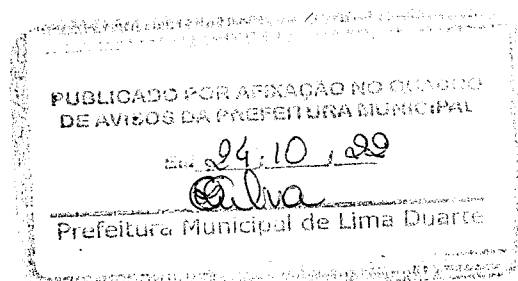 PUBLICADO POR AFIXAÇÃO NO QUADRO
DE AVISOS DA PREFEITURA MUNICIPAL
Em 24, 10, 22
Silva
Prefeitura Municipal de Lima Duarte